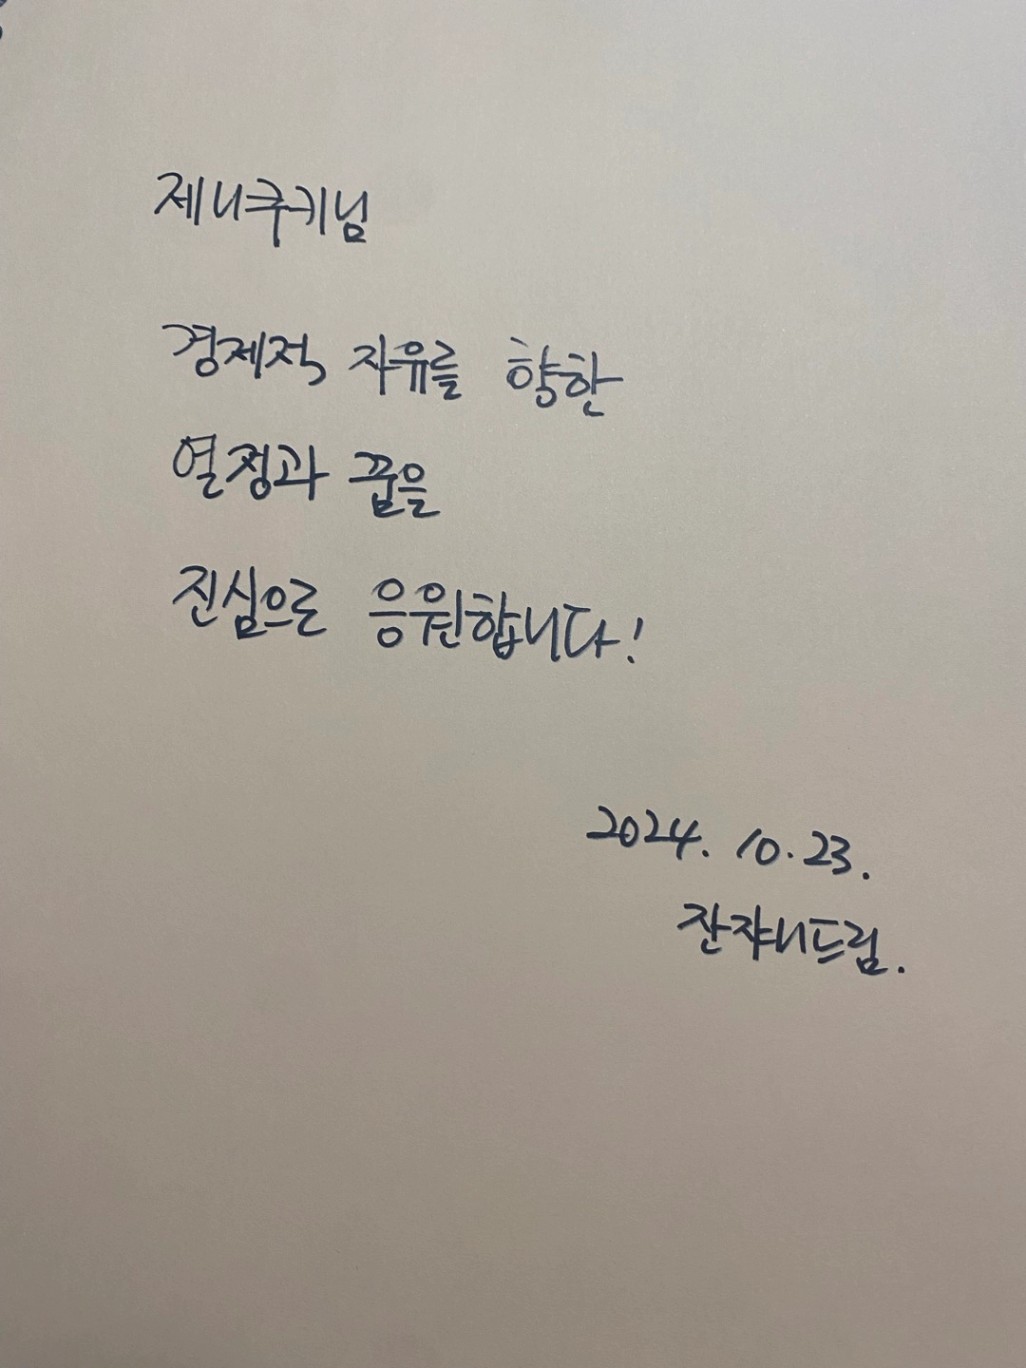 제니쿠키님
경제적 자유를 향한
열정과 꿈을
진심으로 응원합니다!
2024. 10. 23.
잔쟈니드림.